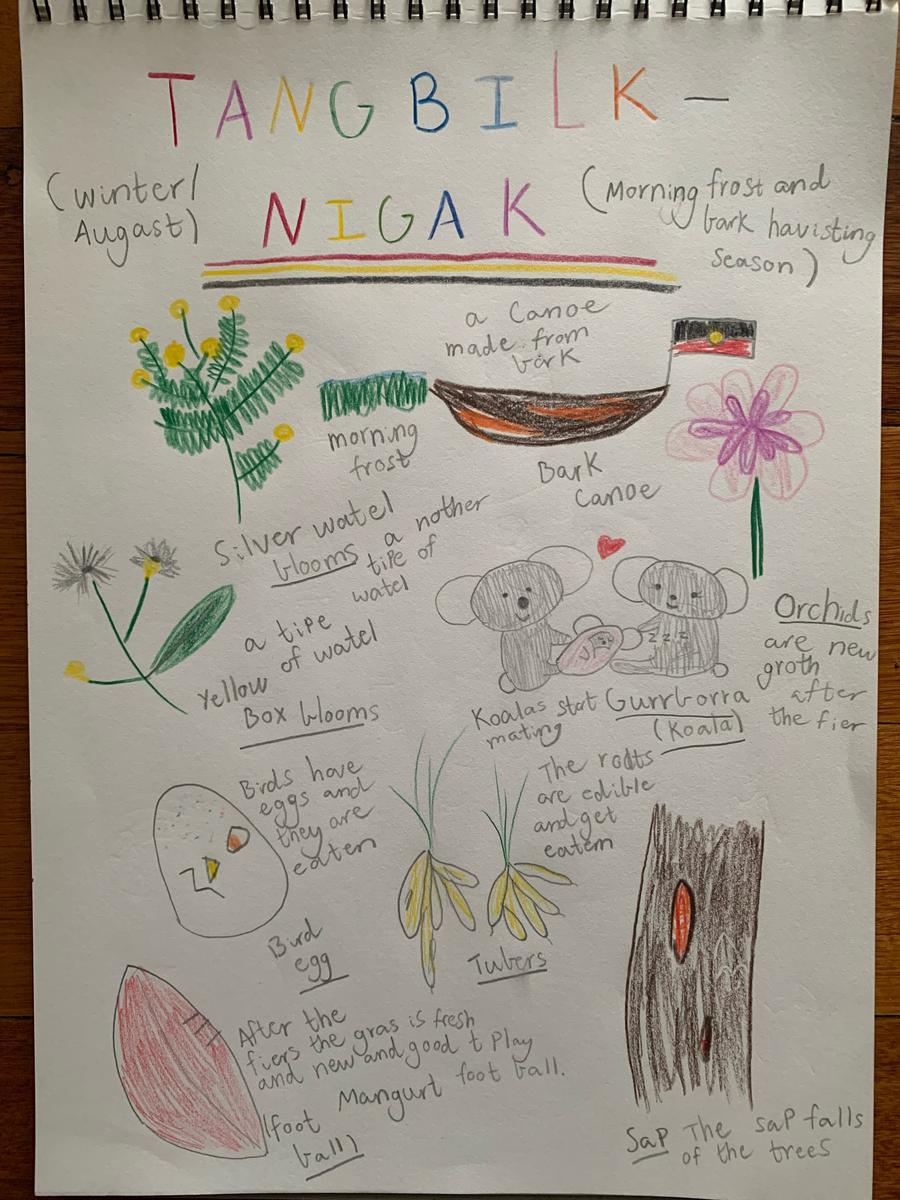 TANGBILK-
(winter/
Augast)
NIGAK
(Morning frost and
bark havisting
season)
a Canoe
made from
bark
morning
frost
Bark
Canoe
Silver watel
blooms
a nother
tipe of
watel
a tipe
of watel
Yellow
Box blooms
Koalas start
mating
Gurrborra
(Koala)
Orchids
are new
groth
after
the fier
z z z z
Birds have
eggs and
they are
eaten
Bird
egg
The roots
are edible
and get
eatem
Tubers
After the
fiers the gras is fresh
and new and good t Play
Mangurt foot ball.
(foot
ball)
Sap The sap falls
of the trees